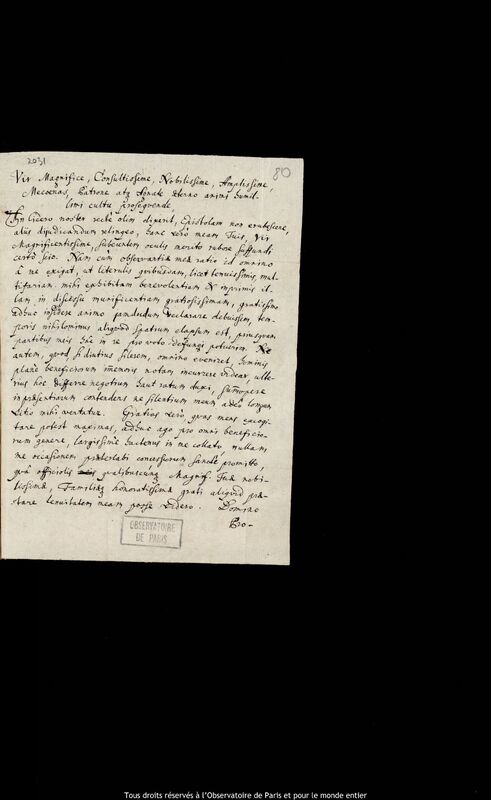 2031
80
Vir Magnifice, Consultissime, Nobilissime, Amplissime,
Mecoenas, Patrone atq; Fautor aeterno animi humil-
limi cultu prosequende.
An Cicero noster recte olim dixerit, Epistolam non erubescere,
aliis dijudicandum relinquo, hanc vero meam Tuis, Vir
Magnificentissime, subeuntem oculis merito rubore suffundi
certo scio. Nam cum observantiae meae ratio id omnino
a me exigat, ut literulis quibusdam, licet tenuissimis, mul-
tifariam mihi exhibitam benevolentiam & inprimis il-
lam in discessu munificentiam gratiosissimam, gratissimo
adhuc insidere animo pandendum declarare debuissem, tem-
poris nihilominus aliquod spatium elapsum est, priusquam
partibus meis hac in re pro voto defungi potuerim. Ne
autem, quod si diutius silerem, omnino eveniret, hominis
plane beneficiorum immemoris notam incurrere videar, ulte-
rius hoc differre negotium haut ratum duxi, summopere
in praesentiarum contendens ne silentium meum adeo longum
vitio mihi vertatur. Gratias vero quas mens excogi-
tare potest maximas, adhuc ago pro omni beneficio-
rum genere, largissime hactenus in me collato, nullam,
me occasionem praeterlabi concessurum sancte promitto,
qua officiolis qualibuscunq; Magnif. Tuae nobi-
lissimae, Familiaeq; honoratissimae grati aliquid prae-
stare tenuitatem meam posse videro. Domino
Pro-
OBSERVATOIRE
DE PARIS
Tous droits réservés à l'Observatoire de Paris et pour le monde entier